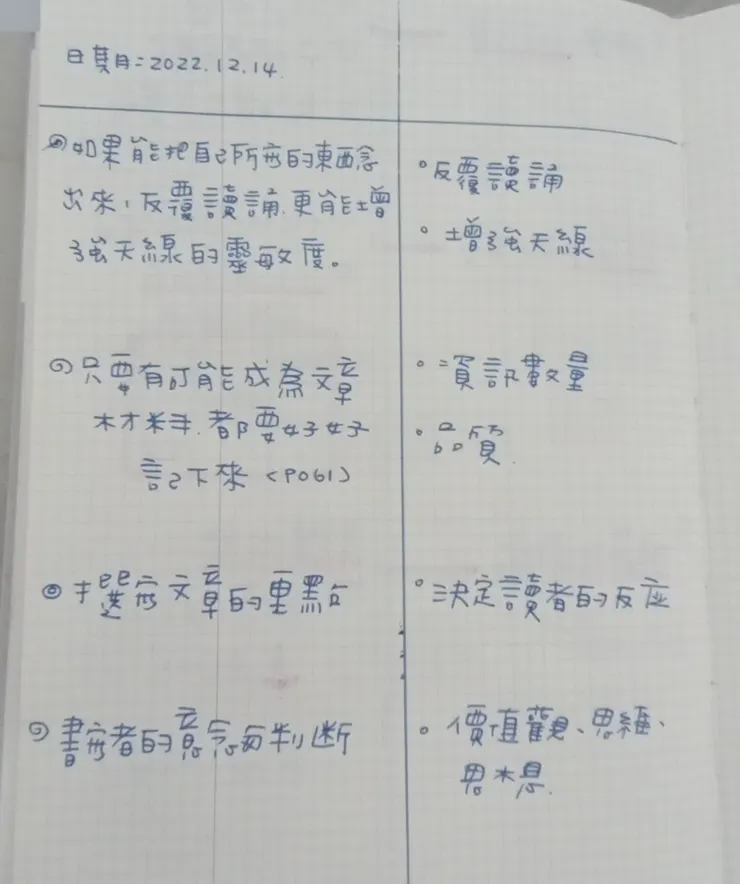 日期:2022.12.14
如果能把自己所寫的東西念
出來,反覆讀誦.更能增
強天線的靈敏度。
只要有可能成為文章
材料.都要好好
記下來(P061)
選寫文章的重點
書寫者的意念每判断
•反覆讀誦
•增強天線
•資訊數量
•品質.
•決定讀者的反应
•價值觀、思維、
思想.